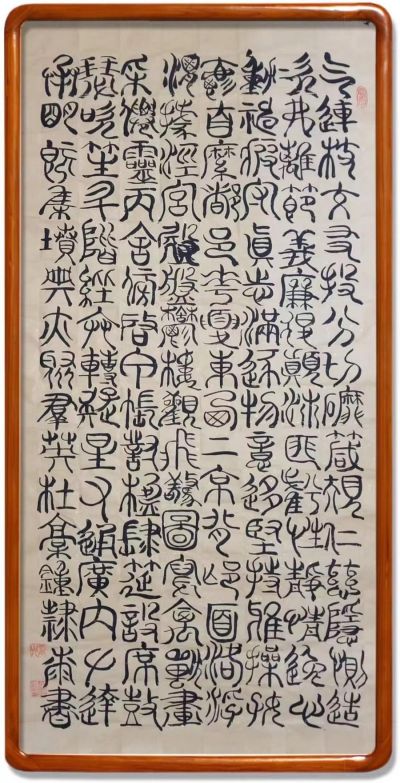 气連枝交友投分切磨箴規仁慈隱惻造
次弗離節義廉退顛沛匪虧性靜情逸心
動神疲守真志滿逐物意移堅持雅操好
爵自縻都邑華夏東西二京背邙面洛浮
渭據涇宮殿盤鬱樓觀飛驚圖寫禽獸畫
采僊靈丙舍傍啓甲帳對楹肆筵設席鼓
瑟吹笙升階納弁轉疑星右通廣內左達
承明既集墳典亦聚羣英杜稾鍾隸漆書